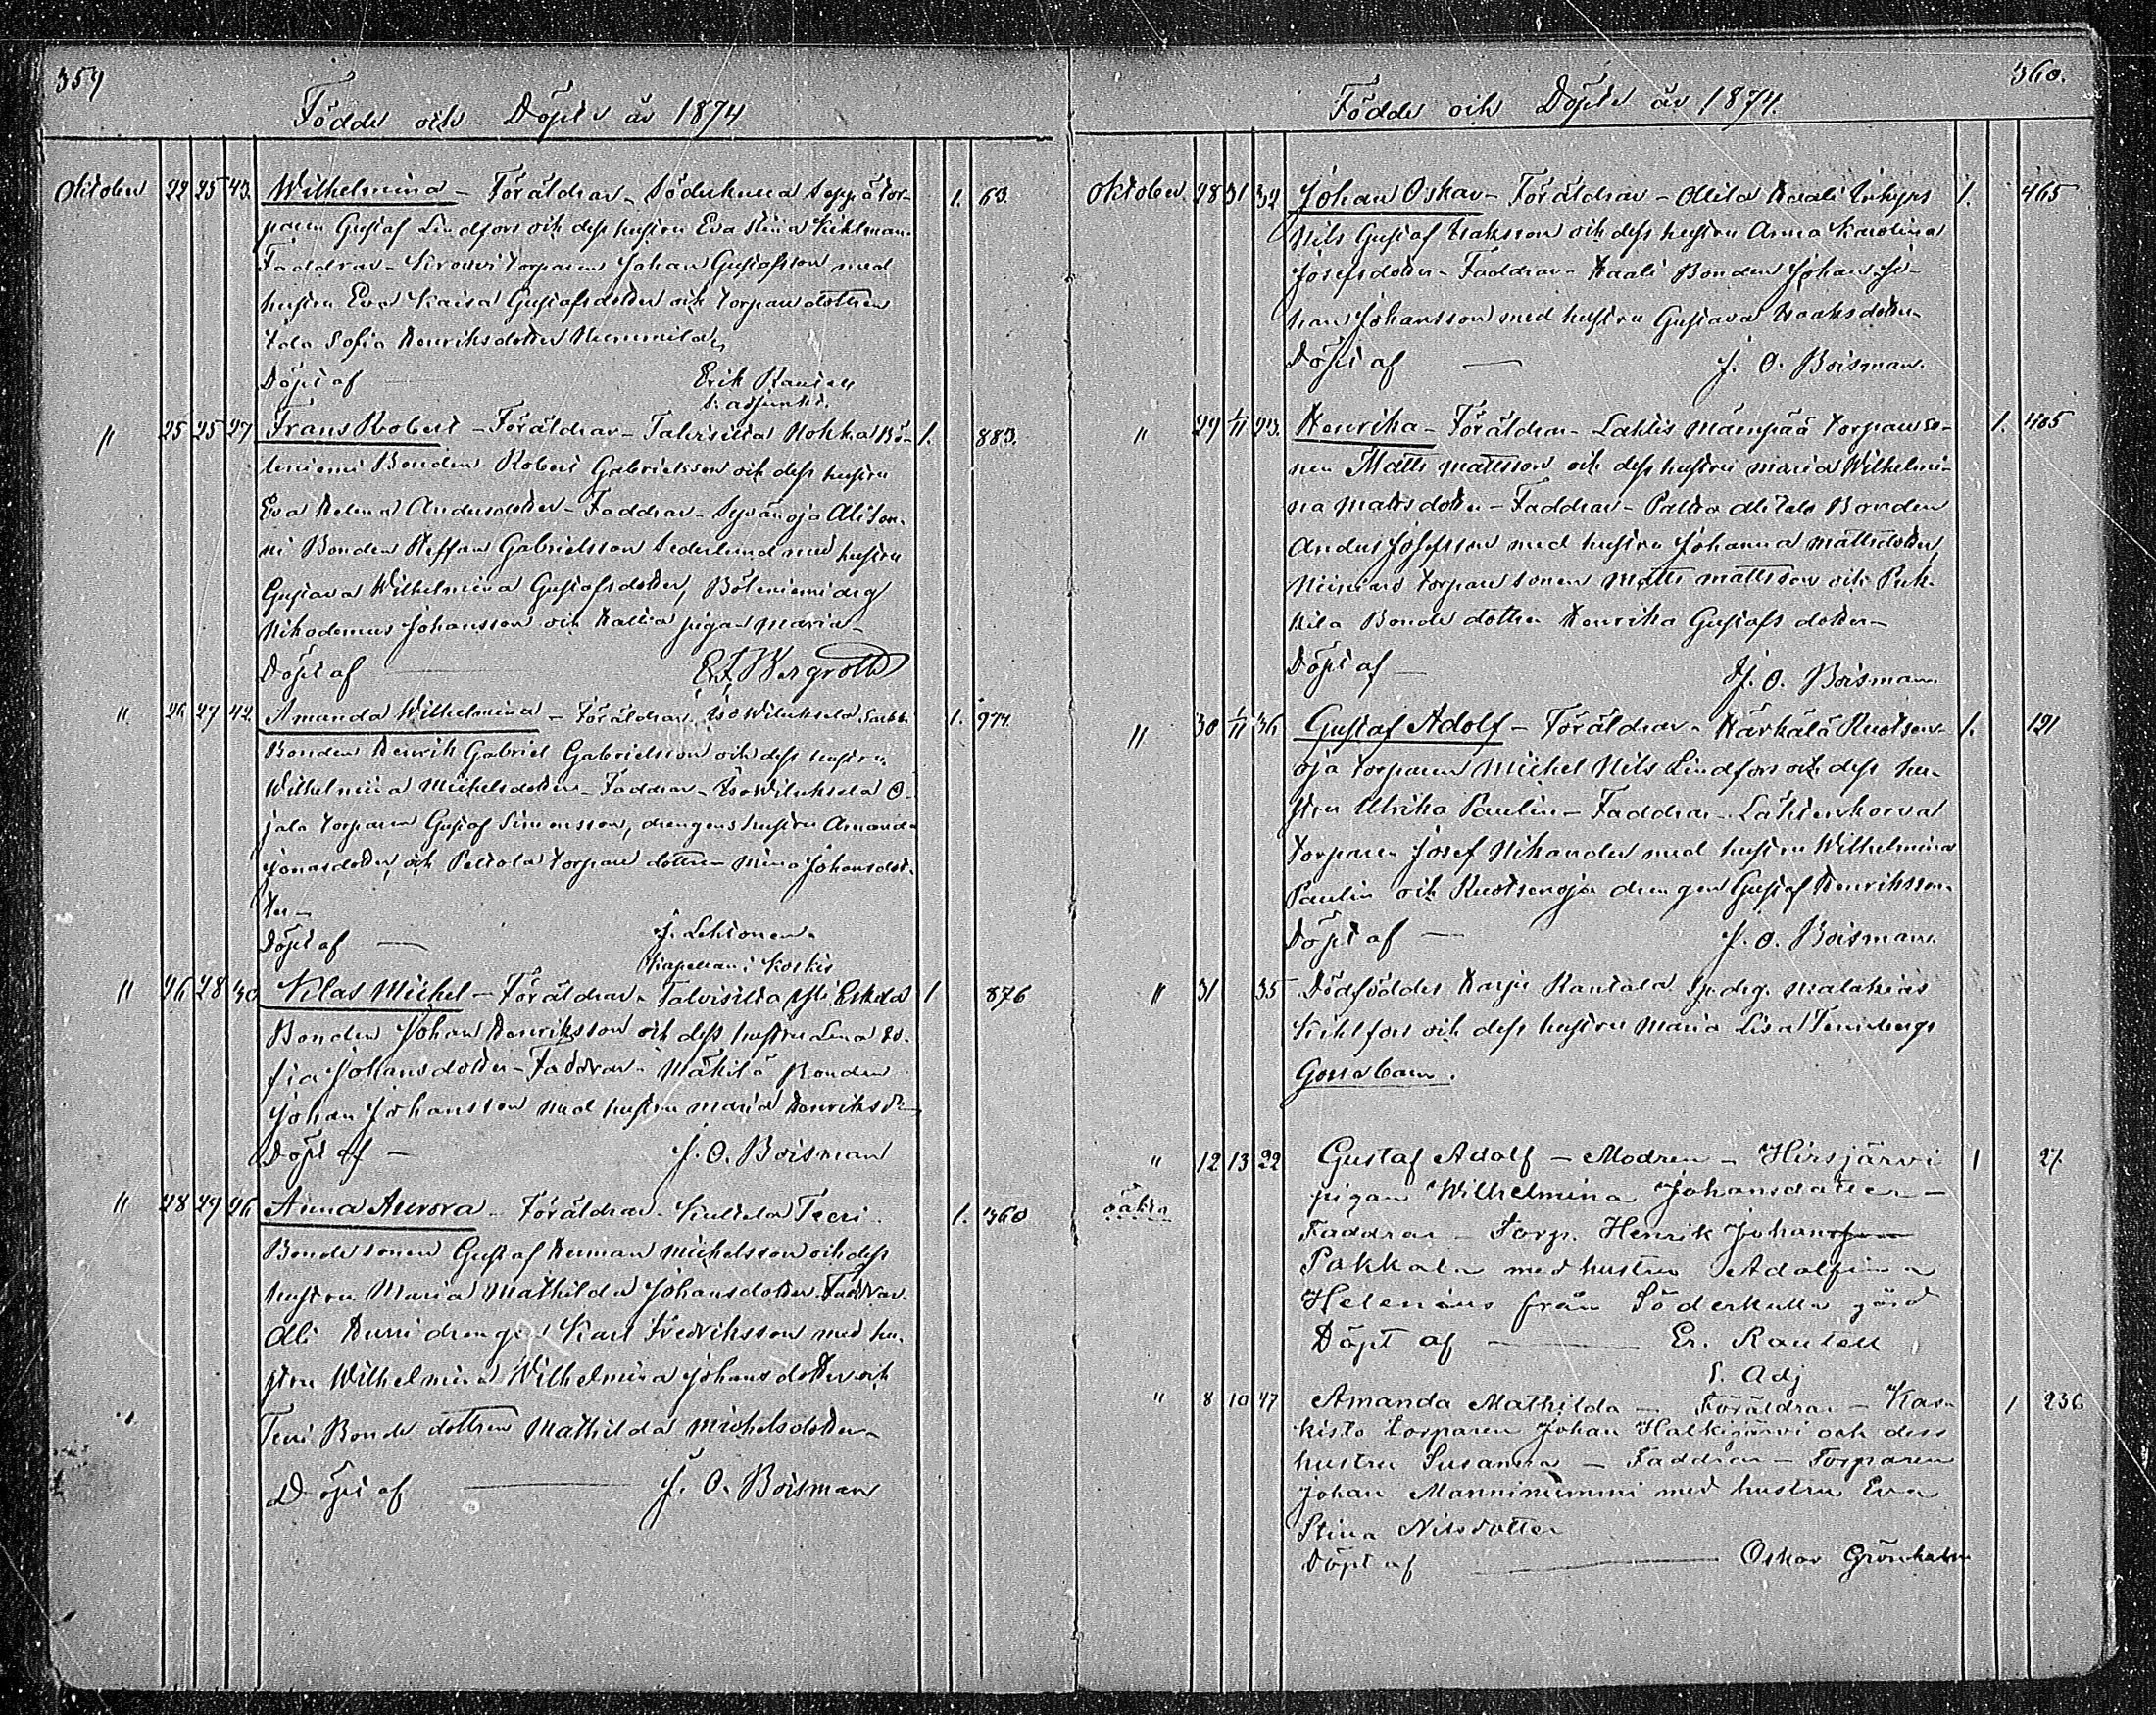 359
Födde och Döpte år 1874
Oktober 22 25 43. Wilhelmina – Föräldrar – Söderkulla Seppä tor- 1. 63.
paren Gustaf Lindfors och dess hustru Eva Stina Kihlman.
Faddrar – torparen Johan Gustafsson med
hustru Eva Kaisa Gustafsdotter och torpare dottren
Sofia Henriksdotter
Döpt af — Erik Rautell
v. adjunkt.
" 25 25 27 Frans Robert – Föräldrar – Talvisilta Nokka Bö- 1. 883.
leniemi Bonden Robert Gabrielsson och dess hustru
Eva Helena Andersdotter – Faddrar – Syvänoja
Bonden Steffan Gabrielsson Sederlund med hustru
Gustava Wilhelmina Gustafsdotter, Böleniemi drg
Nikodemus Johansson och pigan Maria –
Döpt af — Bergroth
" 26 27 42. Amanda Wilhelmina – Föräldrar, 1. 977.
Bonden Henrik Gabriel Gabrielsson och dess hustru
Wilhelmina Mickelsdotter – Faddrar – O-
jala torparen Gustaf Simonsson, drengens hustru Amanda
Jonasdotter, och Peltola torpare dottren Mina Johansdot-
ter –
Döpt af — J. Lehtonen.
Kapellan i Koskis
" 26 28 30 Klas Mickel – Föräldrar – Talvisilta Eskola 1 876
Bonden Johan Henriksson och dess hustru Lena So-
fia Johansdotter – Faddrar – Mäkilä Bonden
Johan Johansson med hustru Maria Henriksdr
Döpt af – J. O. Boisman
" 28 29 26 Anna Aurora – Föräldrar – Teeri 1. 360
Bonde sonen Gustaf Herman Mickelsson och dess
hustru Maria Mathilda Johansdotter – Faddrar
drengen Karl Fredriksson med hu-
stru Wilhelmina Wilhelmina Johansdotter och
Teeri Bonde dottren Mathilda Mickelsdotter –
Döpt af — J. O. Boisman
360.
Födde och Döpte år 1874.
Oktober. 28 31 32 Johan Oskar – Föräldrar – 1. 465
Nils Gustaf Isaksson och dess hustru Anna Karolina
Josefsdotter – Faddrar – Bonden Johan Jo-
han Johansson med hustru Gustava Isaksdotter –
Döpt af — J. O. Boisman.
" 29 1/11 23. Henrika – Föräldrar – Lahtis Mäenpää torpareso- 1. 405
nen Matts Mattsson och dess hustru Maria Wilhelmi-
na Mattsdotter – Faddrar – Bonden
Anders Josefsson med hustru Johanna Mattsdotter,
torpare sonen Matts Mattsson och
Bonde dottren Henrika Gustafs dotter –
Döpt af – J. O. Boisman.
" 30 1/11 36 Gustaf Adolf – Föräldrar – Härkälä Ruotsen- 1. 121
oja torparen Mickel Nils Lindfors och dess hu-
stru Ulrika Paulin – Faddrar – Lähteenkorva
torparen Josef Nikander med hustru Wilhelmina
Paulin och Ruotsenoja drengen Gustaf Henriksson.
Döpt af – J. O. Boisman.
" 31 35 Dödföddes Harju Rantala drg. Malakias
och dess hustru Maria Lisa Tennbergs
Gossebarn.
" 12 13 22 Gustaf Adolf – Modren – Hirsjärvi 1 27.
oäkta pigan Wilhelmina Johansdotter –
Faddrar – Torp. Henrik Johansson
Pakkala med hustru Adolfina
Helenius från Söderkulla gård
Döpt af — Er. Rautell
v. Adj
" 8 10 47 Amanda Mathilda – Föräldrar – Kas- 1 236
kisto torparen Johan Halkijärvi och dess
hustru Susanna – Faddrar – Torparen
Johan Manninummi med hustru Eva
Stina Nilsdotter
Döpt af — Oskar Grönholm